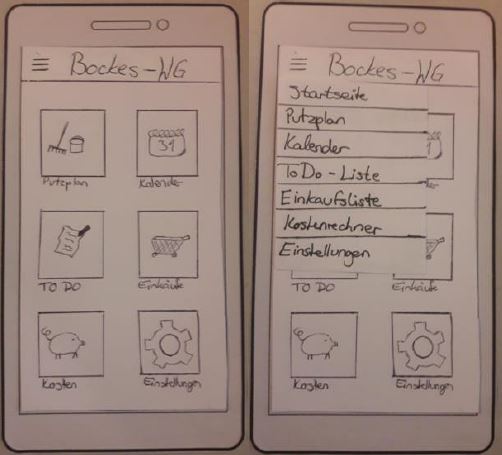 Bockes-WG
Putzplan
31
Kalender
TO DO
Einkäufe
Kosten
Einstellungen
Bockes-WG
Startseite
Putzplan
Kalender
To Do - Liste
Einkaufsliste
Kostenrechner
Einstellungen
TO DO
Einkäufe
Kosten
Einstellungen